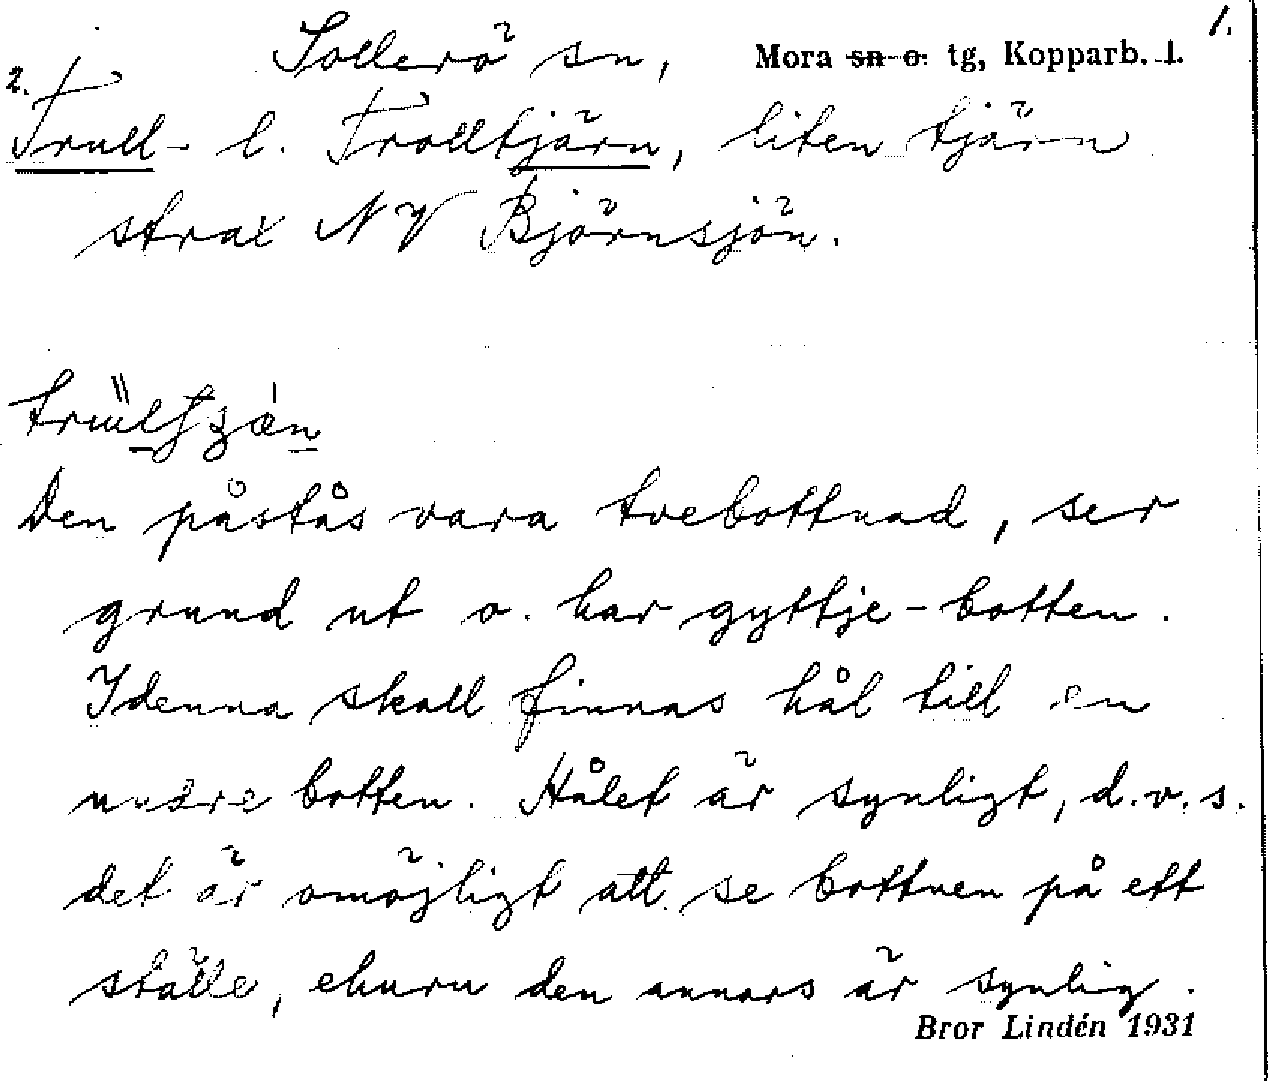 1.
Sollerö sn, Mora sn o. tg, Kopparb. l.
2.
Trull- l. Trolltjärn, liten tjärn
strax NV Björnsjön.
Den påstås vara tvebottnad, ser
grund ut o. har gyttje-botten.
I denna skall finnas hål till en
undre botten. Hålet är synligt, d.v.s.
det är omöjligt att se bottnen på ett
ställe, ehuru den annars är synlig.
Bror Lindén 1931